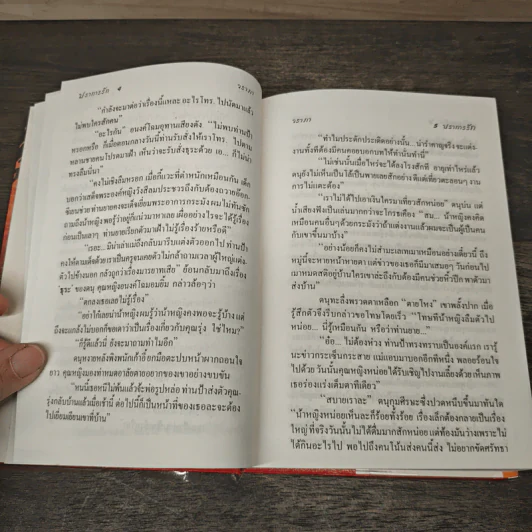 ปราการรัก 4 วราภา
"กำลังจะมาต่อว่าเรื่องนี้แหละ อะไรโทร. ไปนัดมาแล้ว
ไม่พบใครสักคน"
"อะไรกัน" อนงค์โฉมอุทานเสียงดัง "ไม่พบท่านป้า
หรอกหรือ ก็เมื่อตอนกลางวันนี้ท่านรับสั่งให้เราโทร. ไปตาม
หลานชายคนโปรดมาเฝ้า เห็นว่าจะรับสั่งธุระด้วย เอ... ก็ไม่น่า
ทรงลืมนี่นา"
"คงไม่เชิงลืมหรอก เมื่อกี้แวะที่ตำหนักเหมือนกัน เด็ก
บอกว่าเสด็จพระองค์หญิงวังสีลมประชวรถึงกับต้องถวายอ๊อก-
ซิเยนช่วย ท่านยายคงจะเสด็จเยี่ยมพระอาการกระมัง ผมไม่ทันซัก
ถามถึงน้าหญิง พอรู้ว่าอยู่ก็แน่วมาหาเลย เผื่ออย่างไรจะได้รู้เรื่อง
ก่อนเป็นเลาๆ ท่านยายเรียกตัวมาเฝ้า ไม่รู้เรื่องร้ายหรือดี"
"เรอะ...มิน่าเล่าแม่ถึงกลับมารีบแต่งตัวออกไป ท่านป้า
คงให้ตามเด็จด้วย
ตัวไปข้างนอก กลัวถูกว่าเรื่องมารยาทเสีย" ย้อนกลับมาถึงเรื่อง
'ธุระ' ของดนุ คุณหญิงอนงค์โฉมอมยิ้ม กล่าวล้อๆว่า
"ตกลงเธอเลยไม่รู้เรื่อง"
"อย่าให้ผมเดาน้าหญิงผมรู้ว่าน้าหญิงคงพอจะรู้บ้าง แต่
ถึงจะแกล้งไม่บอกก็ขอเดาว่าเป็นเรื่องเกี่ยวกับคุณรุ่ง ใช่ไหม?"
"ก็รู้ดีแล้วนี่ ยังจะมาถามทำไมอีก"
ดนุหงายหลังพิงพนักเก้าอี้ยกมือตะปบหน้าผากถอนใจ
ยาว คุณหญิงมองท่าหมดอาลัยตายอยากของเขาอย่างขบขัน
"หนนี้เธอหนีไม่พ้นแล้วซิพ่อรูปหล่อ ท่านป้าสั่งตัวคุณ-
รุ่งกลับบ้านแล้วเมื่อเช้านี้ ต่อไปนี้ก็เป็นหน้าที่ของเธอละจะต้อง
ไปเยี่ยมเยียนเขาที่บ้าน"
วราภา 5 ปราการรัก
"ทำไมประดักประเดิดอย่างนั้น...น่ารำคาญจริงจะแต่ง-
งานทั้งทีต้องมีคนคอยบอกบทให้ทำนั่นทำนี่"
"ไม่เช่นนั้นเมื่อไหร่จะได้เรื่องสักที อายุเท่าไหร่แล้ว
ดนุยังไม่เห็นเป็นโล้เป็นพายเลยสักอย่าง ดีแต่เที่ยวตะลอนๆ งาน
การไม่แตะต้อง"
"เราไม่ได้ไปเอาเงินใครมาเที่ยวสักหน่อย" ดนุบ่น แต่
น้ำเสียงฟังเป็นเล่นมากกว่าจะโกรธเคือง "สม... น้าหญิงคงคิด
เหมือนคนอื่นๆด้วยกระมังว่าถ้าแต่งงานแล้วผมจะเป็นผู้เป็นคน
กับเขาขึ้นมาบ้าง"
"อย่างน้อยก็คงไม่สำมะเลเทเมาเหมือนอย่างเดี๋ยวนี้ ถึง
หมู่นี้จะหายหน้าหายตา แต่ข่าวของเธอก็มีมาเสมอๆ วันก่อนไป
เมาหมดสติอยู่บ้านใครเขาล่ะถึงกับต้องมีคนช่วยหิ้วปีก พาตัวมา
ส่งบ้าน"
ดนุทะลึ่งพรวดตาเหลือก "ตายโหง" เขาพลั้งปาก เมื่อ
รู้สึกตัวจึงรีบกล่าวขอโทษโดยเร็ว "โทษทีน้าหญิงลืมตัวไป
หน่อย... นี่รู้เหมือนกัน หรือว่าท่านยาย..."
"อือ... ไม่ต้องห่วง ท่านป้าทรงทราบเป็นองค์แรก เรารู้-
น่ะข่าวกระเซ็นกระสาย แม่แอบมาบอกอีกทีหนึ่ง พลอยร้อนใจ
ไปด้วย วันนั้นคุณหญิงหน่อยได้รับเชิญไปงานเลี้ยงด้วย เห็นภาพ
เธอร่องเร่งเต็มตาทีเดียว"
"สบายเราละ" ดนุกุมศีรษะซึ่งปวดหนึบขึ้นมาทันใด
"น้าหญิงหน่อยเห็นละก็ร้อยทั้งร้อย เรื่องเล็กต้องกลายเป็นเรื่อง
ใหญ่ ที่จริงวันนั้นไม่ได้ดื่มมากสักหน่อย แต่ท้องมันว่างเพราะไม่
ได้กินอะไรไป พอไปถึงคนโน้นส่งคนนี้ส่ง ไม่อยากขัดศรัทธา